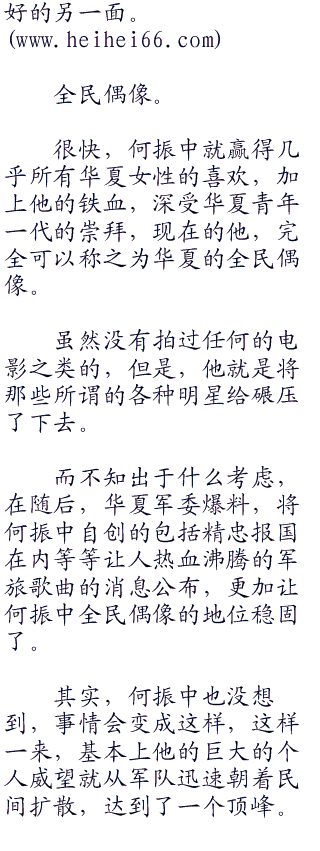 好的另一面。
(www.heihei66.com)
全民偶像。
很快，何振中就赢得几
乎所有华夏女性的喜欢，加
上他的铁血，深受华夏青年
一代的崇拜，现在的他，完
全可以称之为华夏的全民偶
像。
虽然没有拍过任何的电
影之类的，但是，他就是将
那些所谓的各种明星给碾压
了下去。
而不知出于什么考虑，
在随后，华夏军委爆料，将
何振中自创的包括精忠报国
在内等等让人热血沸腾的军
旅歌曲的消息公布，更加让
何振中全民偶像的地位稳固
了。
其实，何振中也没想
到，事情会变成这样，这样
一来，基本上他的巨大的个
人威望就从军队迅速朝着民
间扩散，达到了一个顶峰。